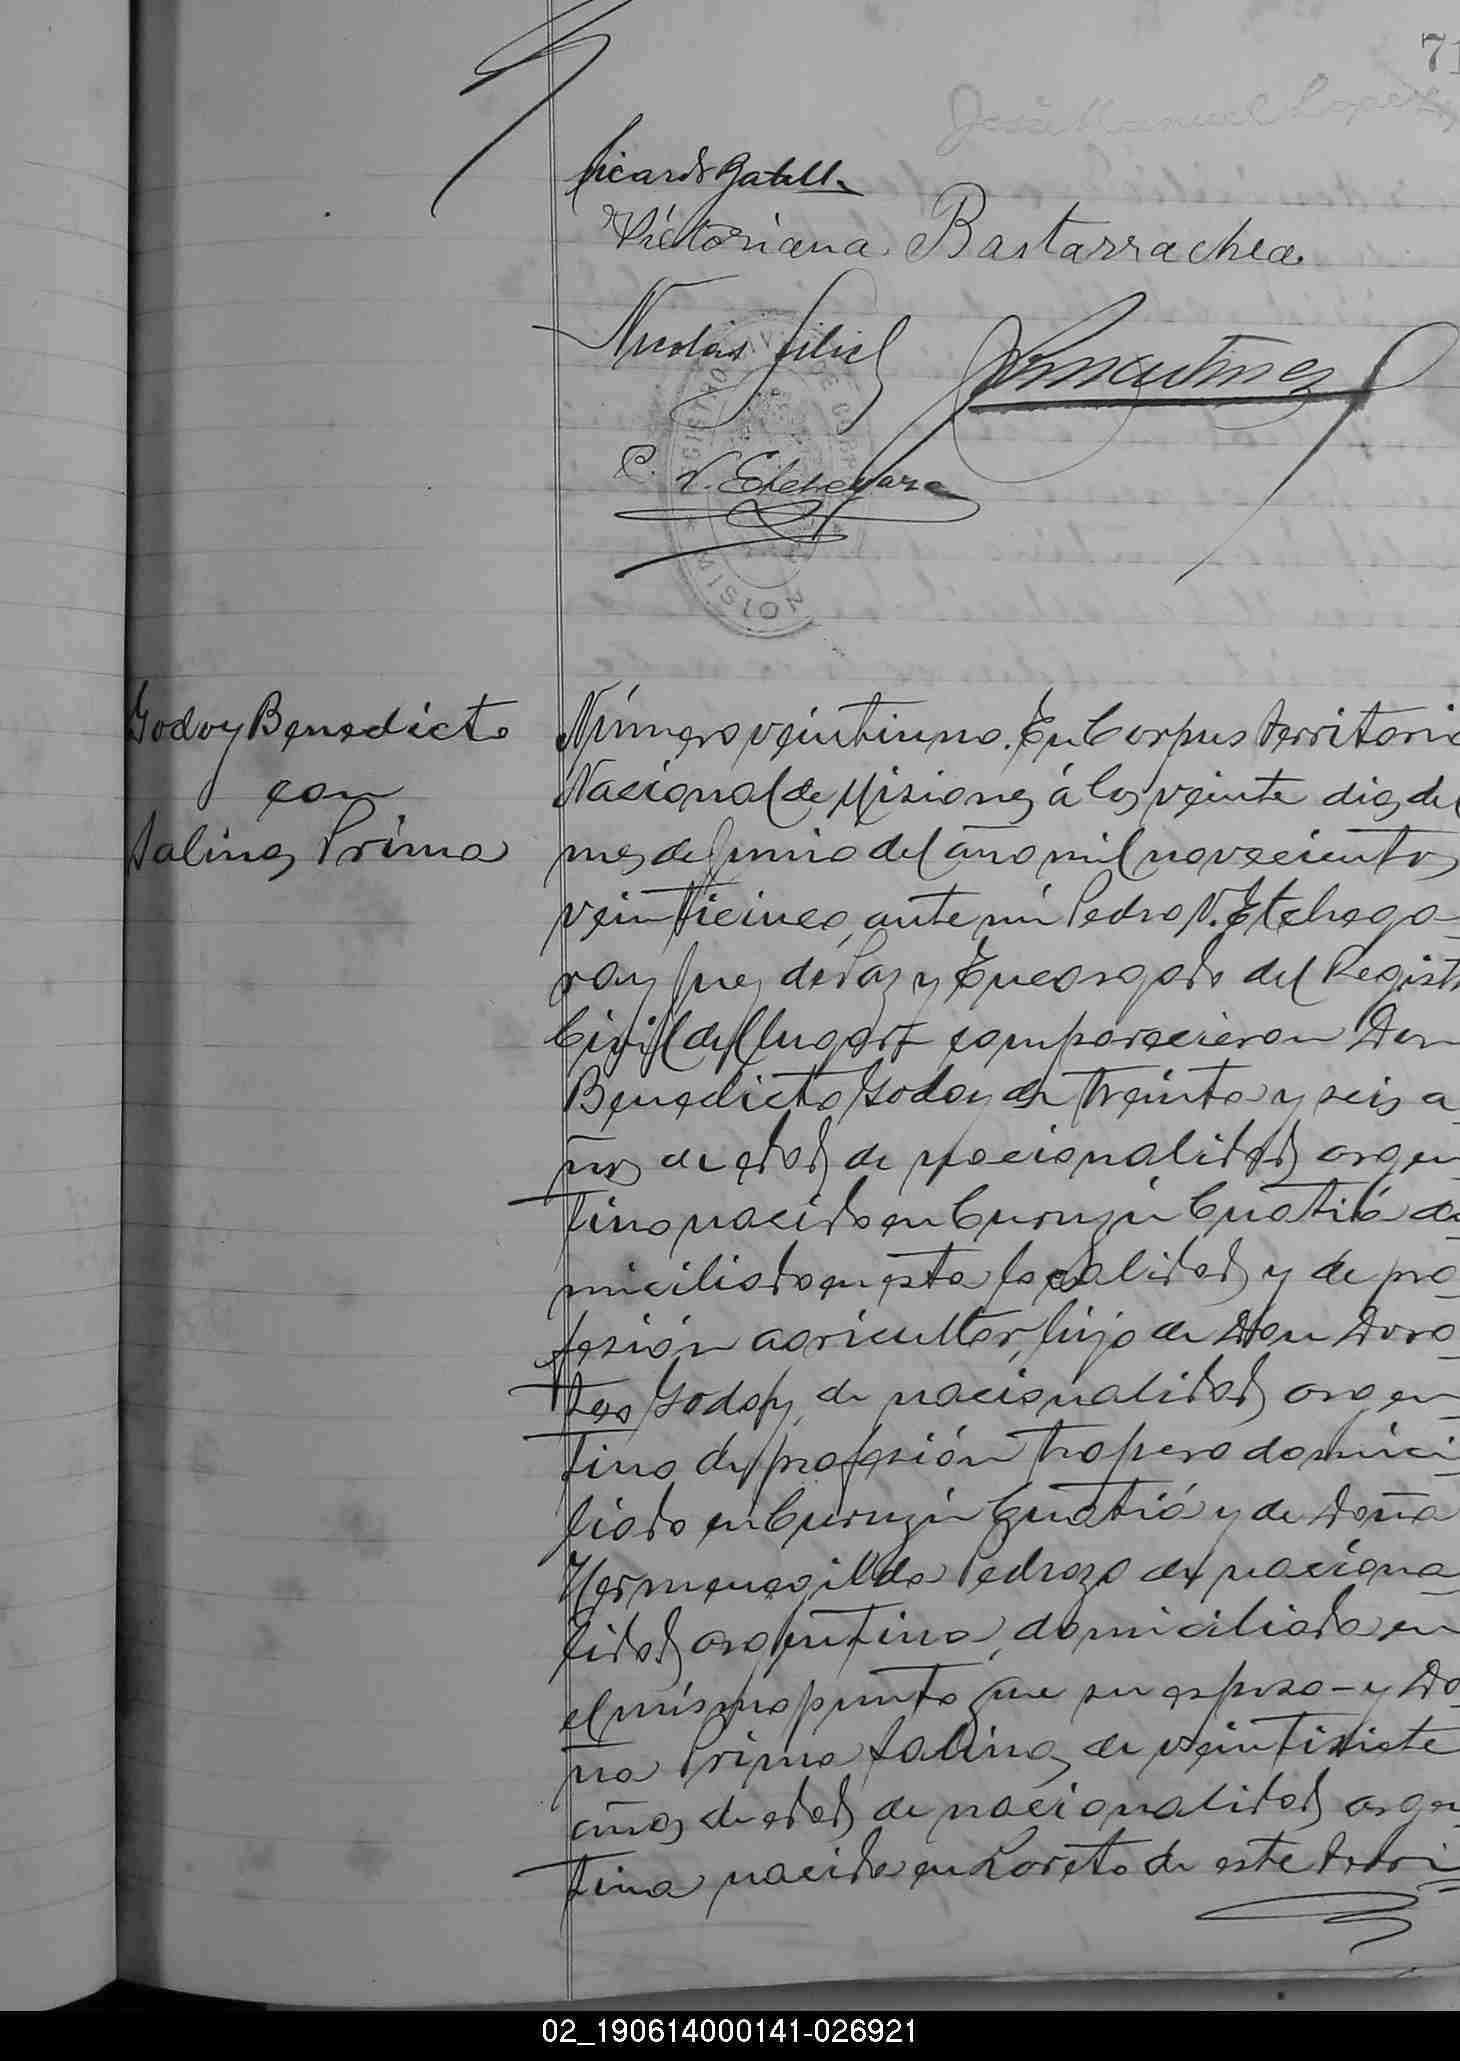 71
José Manuel Lopez
Ricardo
Victoriana Bastarrachea
Nicolás
P. V. Etchegaray
REGISTRO CIVIL DE CORPUS
* MISIONES *
Godoy Benedicto
con
Salinas Prima
Número veintiuno. En Corpus Territorio
Nacional de Misiones á los veinte dias del
mes de Junio del año mil novecientos
veinticinco, ante mi Pedro V. Etchega-
ray Juez de Paz y Encargado del Registr
Civil del lugar comparecieron Don
Benedicto Godoy de treinta y seis a
ños de edad de nacionalidad argen
tino nacido en Curuzú Cuatiá do
miciliado en esta localidad y de pro
fesión agricultor, hijo de Don Doro
teo Godoy, de nacionalidad argen
tino de profesión tropero domici
liado en Curuzú Cuatiá y de Doña
Hermenegilda Pedrozo de naciona
lidad argentina, domiciliada en
el mismo punto que su esposo - y Do
ña Prima Salinas de veintisiete
años de edad de nacionalidad argen
tina nacida en Loreto de este Terri
02_190614000141-026921